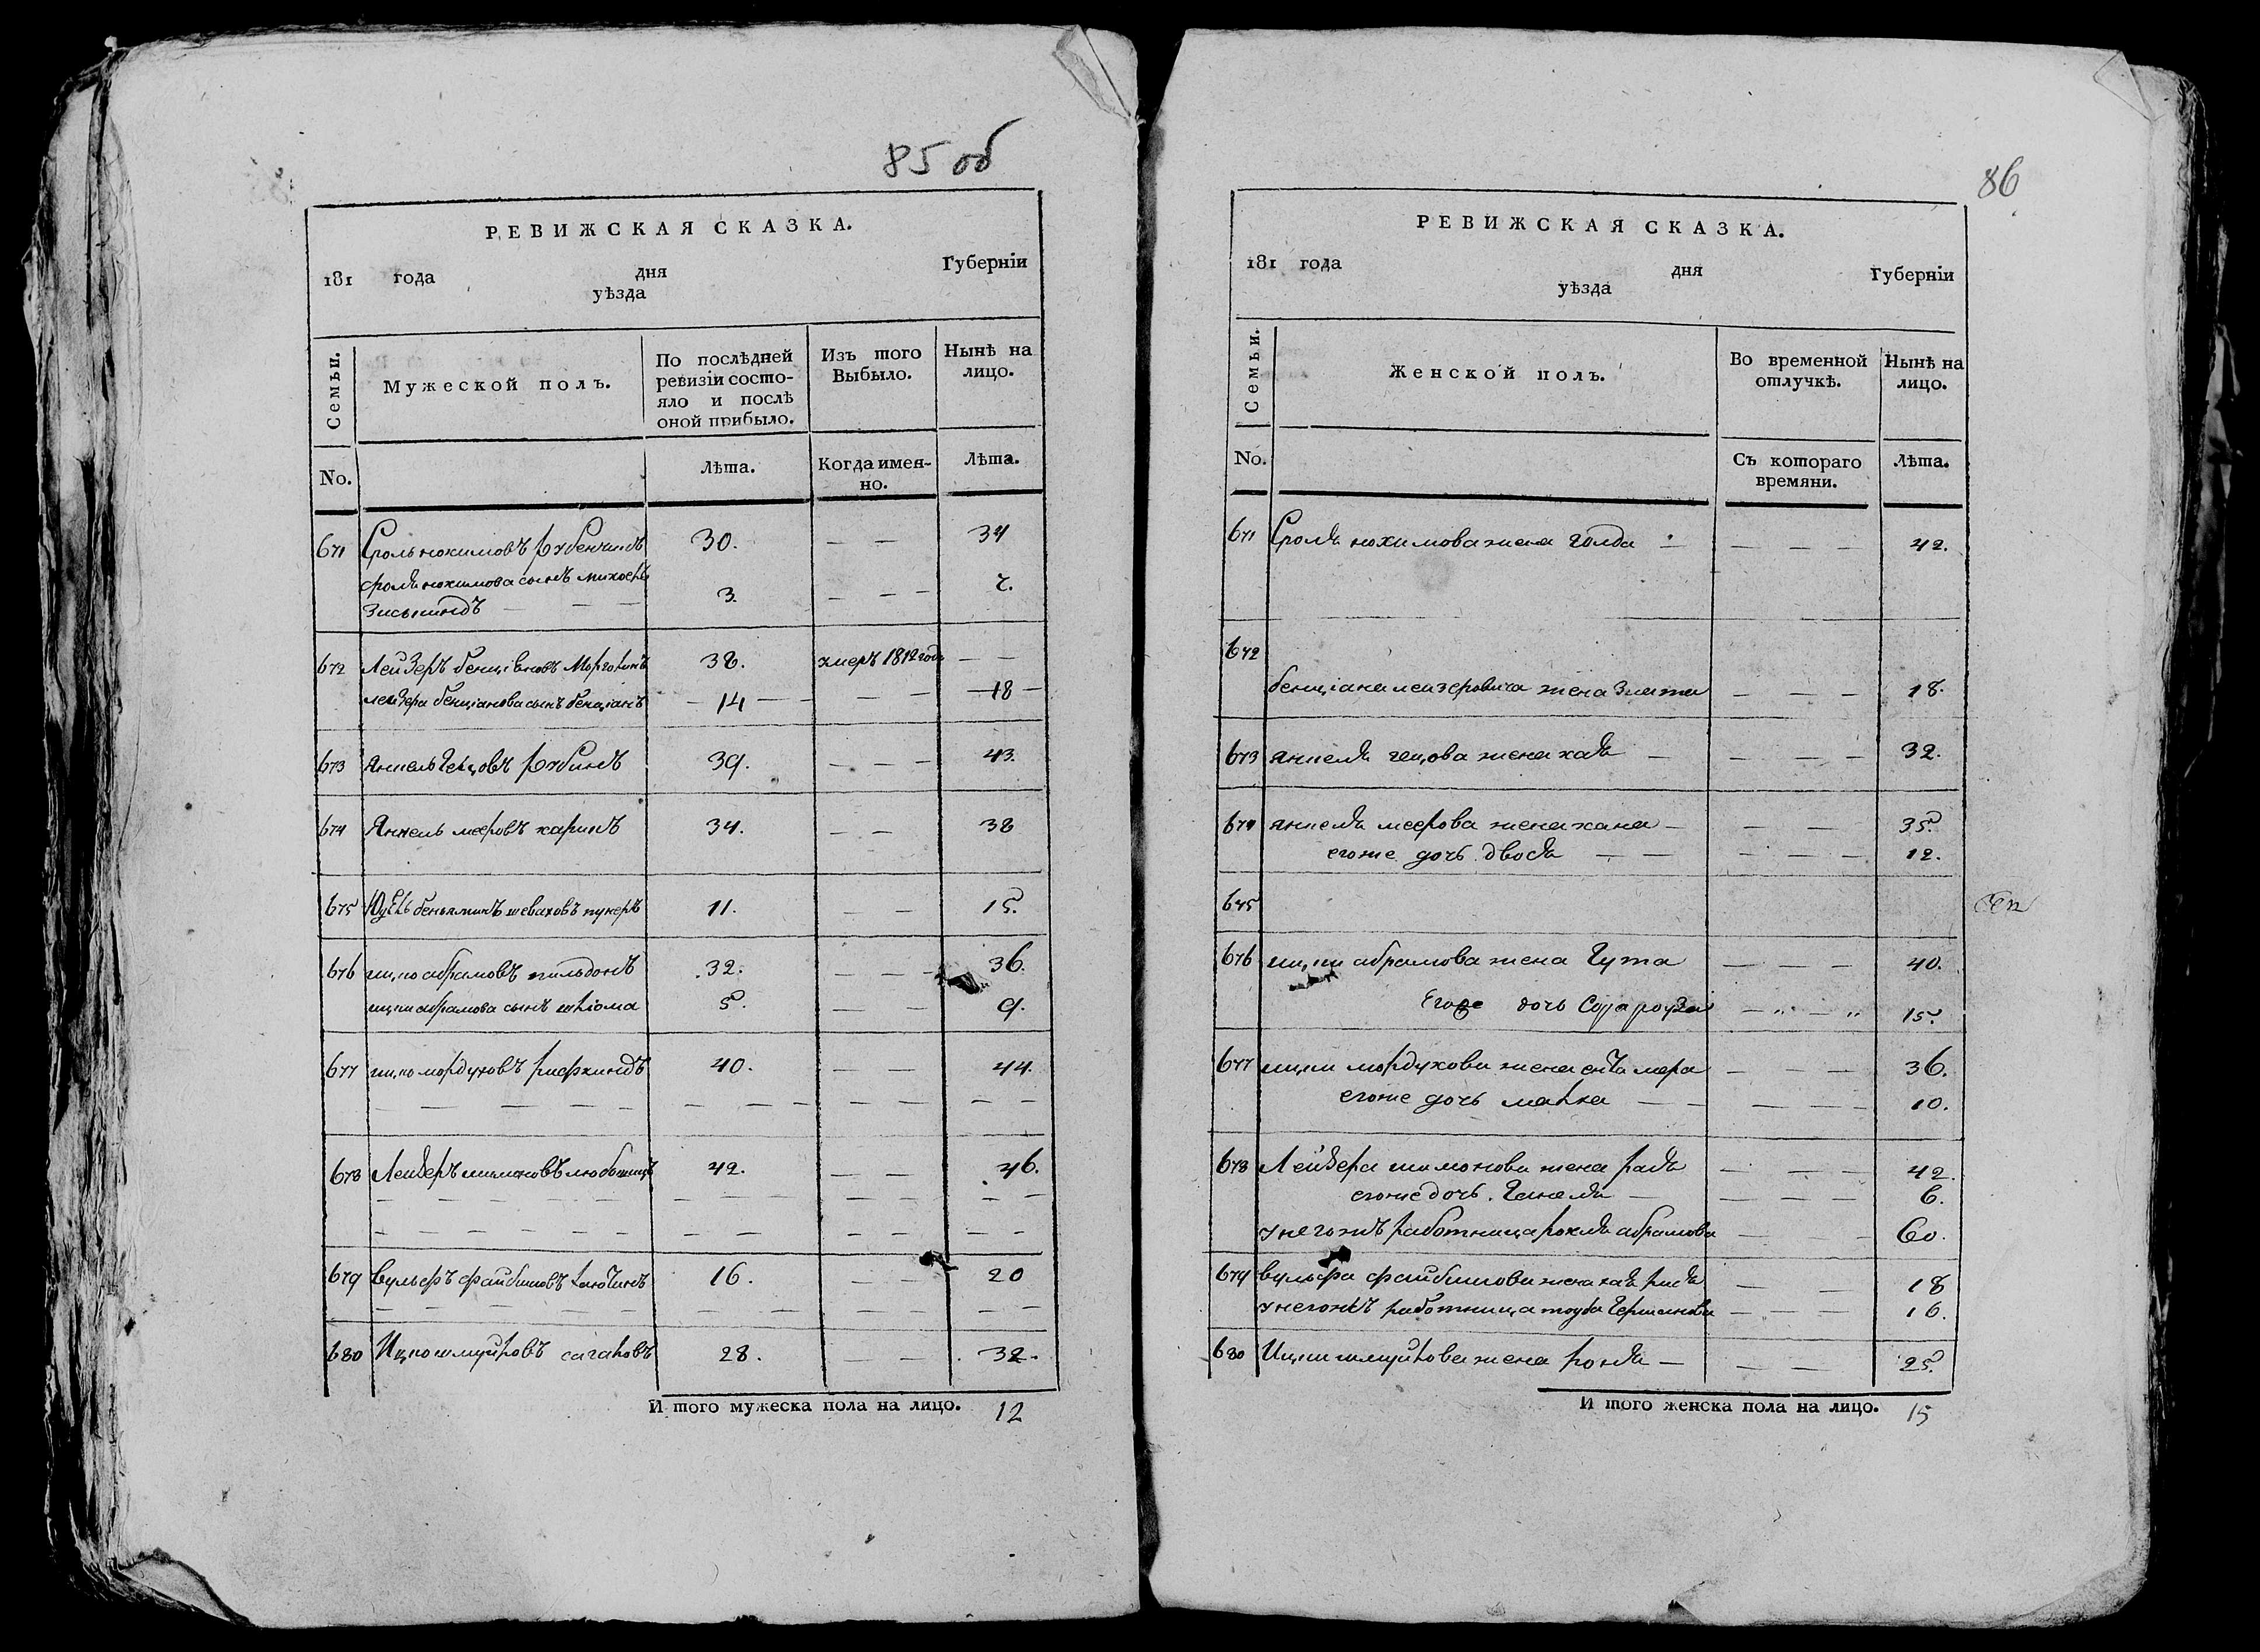 85 об
РЕВИЖСКАЯ СКАЗКА.
181 года дня Губернїи
уѣзда
Семьи.
Мужеской полъ.
По послѣдней ревизїи состояло и послѣ оной прибыло.
Изъ того Выбыло.
Нынѣ на лицо.
No.
Лѣта.
Когда именно.
Лѣта.
671 Сроль нохимовъ 30. — — 34
сроля нохимова сынъ 3. — — — 7.
Зискиндъ — — —
672 Лейзеръ бенціановъ 38. умеръ 1812 года — —
лейзера бенціанова сынъ бенціанъ — 14 — — — — 18 —
673 Янкель Гецовъ рубинъ 39. — — — 43.
674 Янкель меeровъ каринъ 34. — — 38
675 беньяминъ шеваховъ 11. — — 15.
676 ицко абрамовъ 32. — — — 36.
ицки абрамова сынъ 5. — — 9.
677 ицко мордуховъ рифкиндъ 40. — — 44.
678 Лейзеръ шимоновъ 42. — — 46.
679 вульфъ файбишовъ 16. — — 20
680 Ицко 28. — — 32.
И того мужеска пола на лицо. 12
86
РЕВИЖСКАЯ СКАЗКА.
181 года дня Губернїи
уѣзда
Семьи.
Женской полъ.
Во временной отлучкѣ.
Нынѣ на лицо.
No.
Съ котораго времяни.
Лѣта.
671 Сроля нохимова жена голда — — — — 42.
672
бенціана лейзеровича жена злата — — — 18.
673 янкеля гецова жена хая — — — — 32.
674 янкеля меерова жена хана — — — 35.
егоже дочь двося — — — — — 12.
675
676 ицки абрамова жена Гута — — — 40.
Егоже дочь Сора ройза — „ — „ 15.
677 ицки мордухова жена мера — — — 36.
егоже дочь — — — — — 10.
678 Лейзера шимонова жена рася — — — 42.
егоже дочь — — — — 6.
у негожъ работница рохля абрамова — — 60.
679 вульфа файбишова жена хая — — 18
у негожъ работница тауба Гершанова — — — 16.
680 Ицки жена — — — 25.
И того женска пола на лицо. 15